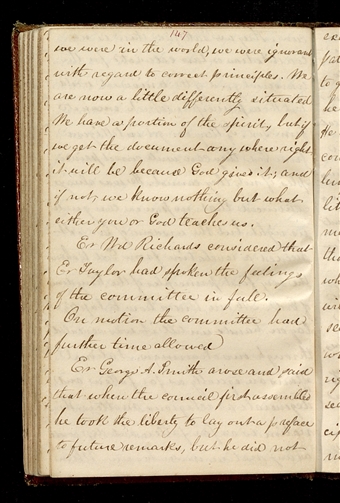 147
we were in the world, we were ignorant
with regard to correct principles. We
are now a little differently situated
We have a portion of the spirit, but if
we get the document any where right,
it will be because God gives it; and
if not, we know nothing but what
either you or God teaches us.
Er Wd Richards considered that
Er Taylor had spoken the feelings
of the committee in full.
On motion the committee had
further time allowed
Er George A. Smith arose and said
that when the council first assembled
he took the liberty to lay out a preface
to future remarks, but he did not